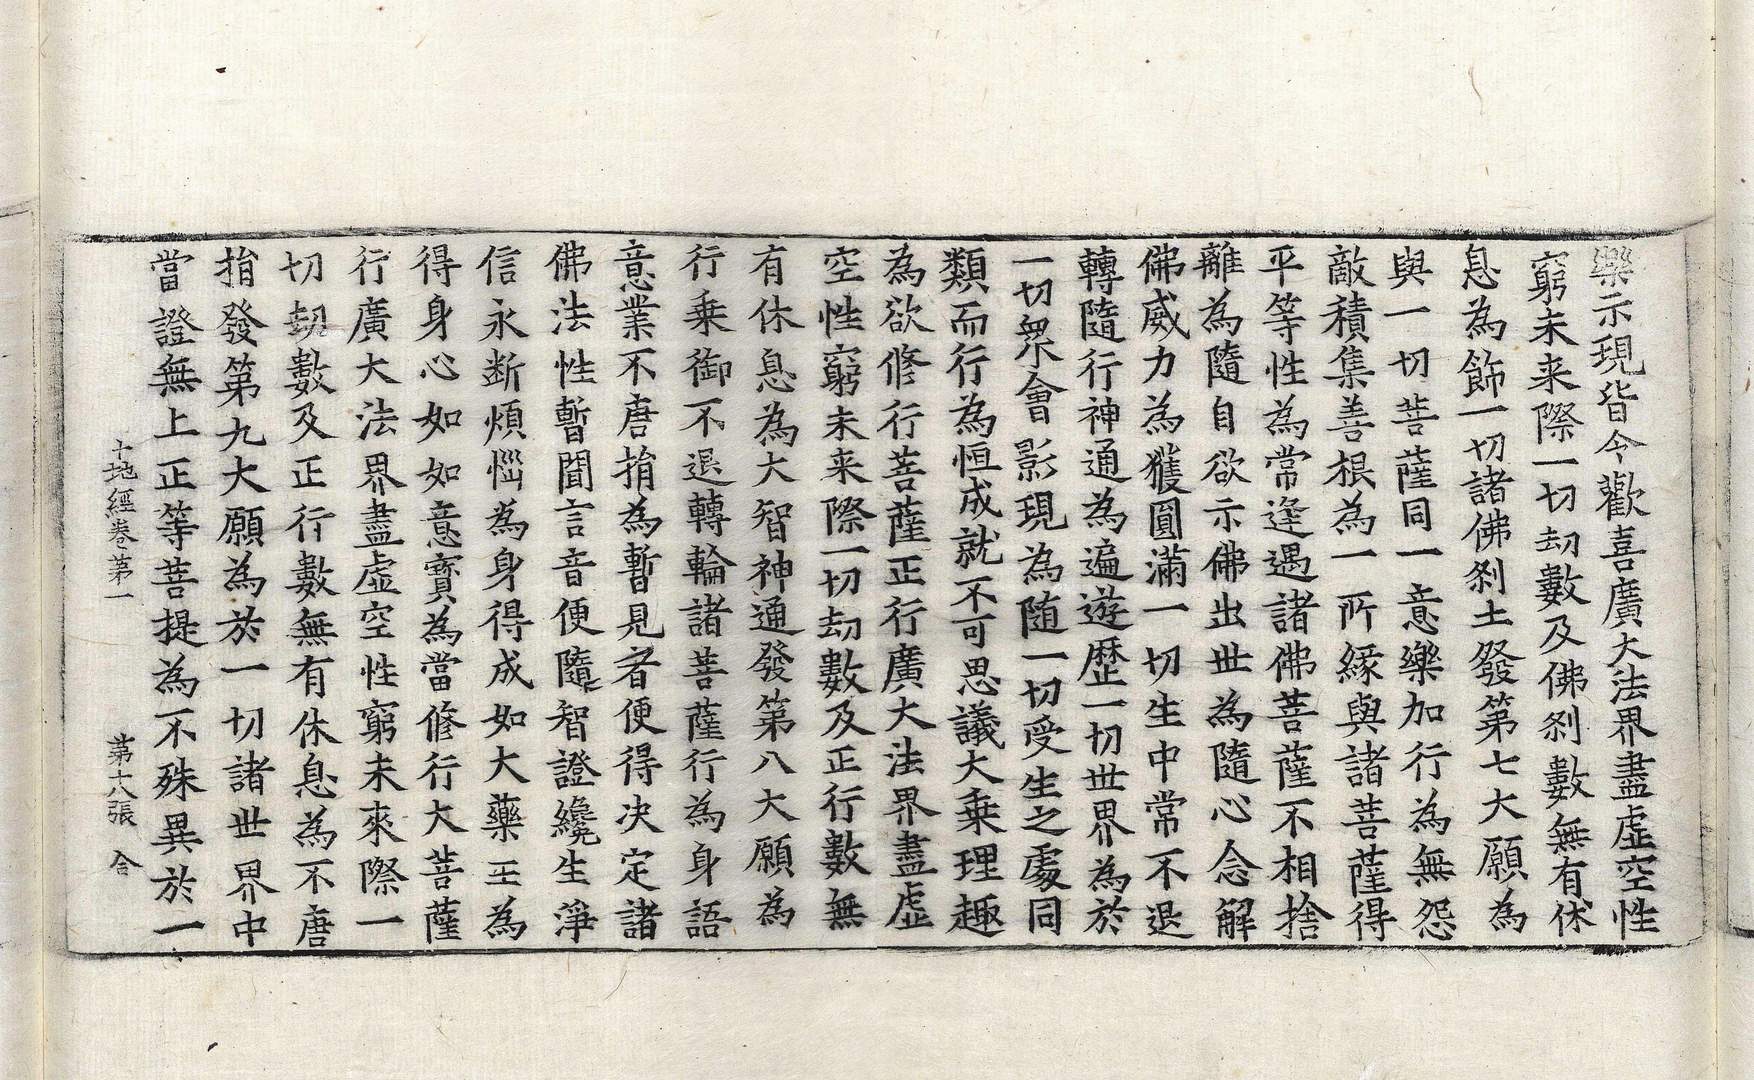 樂示現皆令歡喜廣大法界盡虛空性
窮未来際一切劫數及佛剎數無有休
息為飾一切諸佛剎土發第七大願為
與一切菩薩同一意樂加行為無怨
敵積集善根為一所緣與諸菩薩得
平等性為常逢遇諸佛菩薩不相捨
離為隨自欲示佛出世為隨心念解
佛威力為獲圓滿一切生中常不退
轉隨行神通為遍遊歷一切世界為於
一切眾會影現為随一切受生之處同
類而行為恒成就不可思議大乘理趣
為欲修行菩薩正行廣大法界盡虛
空性窮未来際一切劫數及正行數無
有休息為大智神通發第八大願為
行乘御不退轉輪諸菩薩行為身語
意業不唐捐為暫見者便得決定諸
佛法性暫聞言音便隨智證纔生淨
信永断煩惱為身得成如大藥王為
得身心如如意寶為當修行大菩薩
行廣大法界盡虛空性窮未來際一
切劫數及正行數無有休息為不唐
捐發第九大願為於一切諸世界中
當證無上正等菩提為不殊異於一
十地經卷第一 第十八張 合